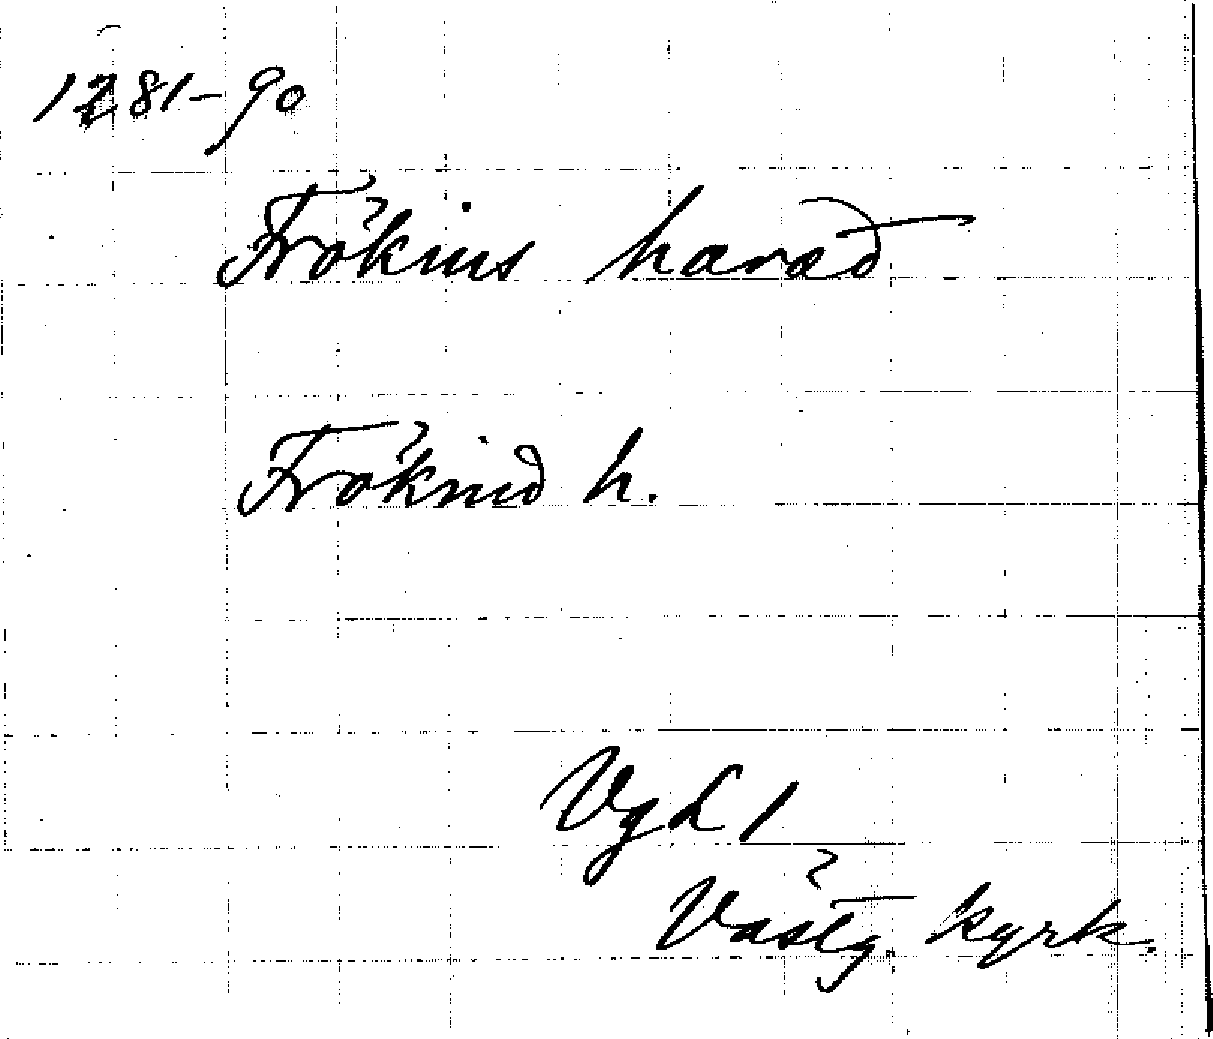 1281-90
Frökius haræð
Frökind h.
VgL 1
Västg. kyrk.